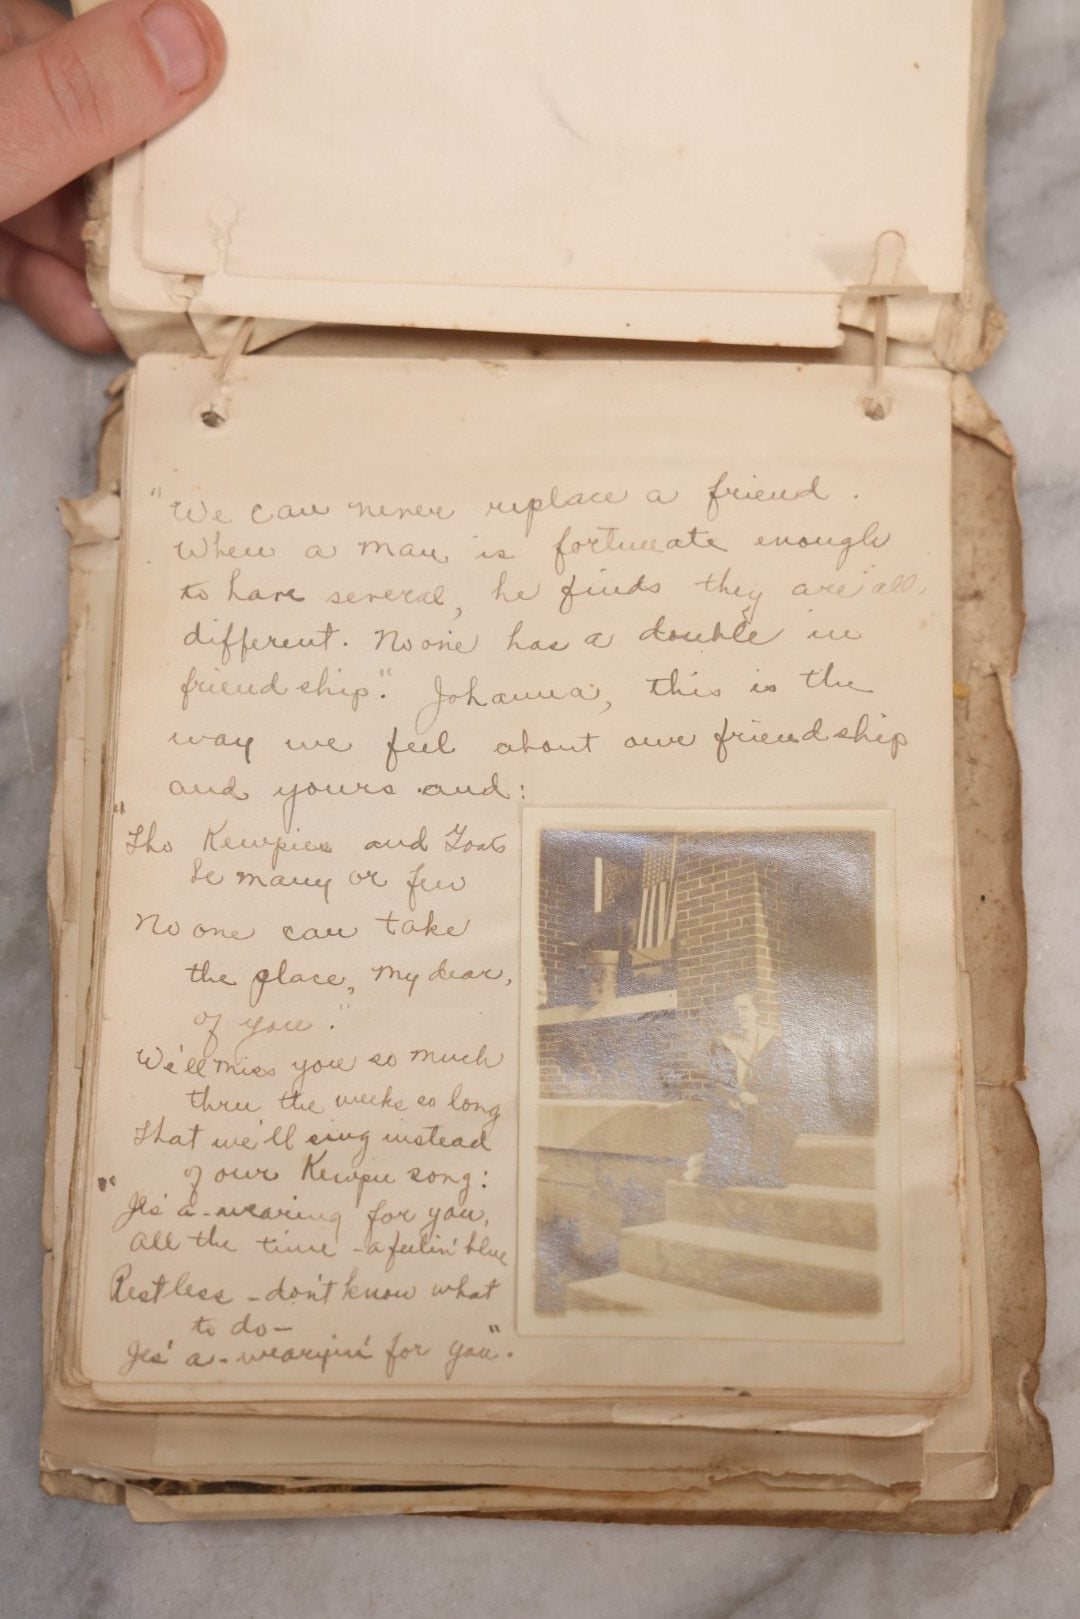 "We can never replace a friend.
When a man is fortunate enough
to have several, he finds they are all
different. No one has a double in
friendship." Johanna, this is the
way we feel about our friendship
and yours and:
"Tho Kewpies and Goats
be many or few
No one can take
the place, my dear,
of you."
We'll miss you so much
thru the weeks so long
That we'll sing instead
of our Kewpie song:
"Jes' a-wearing for you,
All the time - a feelin' blue
Restless - don't know what
to do -
Jes' a-wearyin' for you".